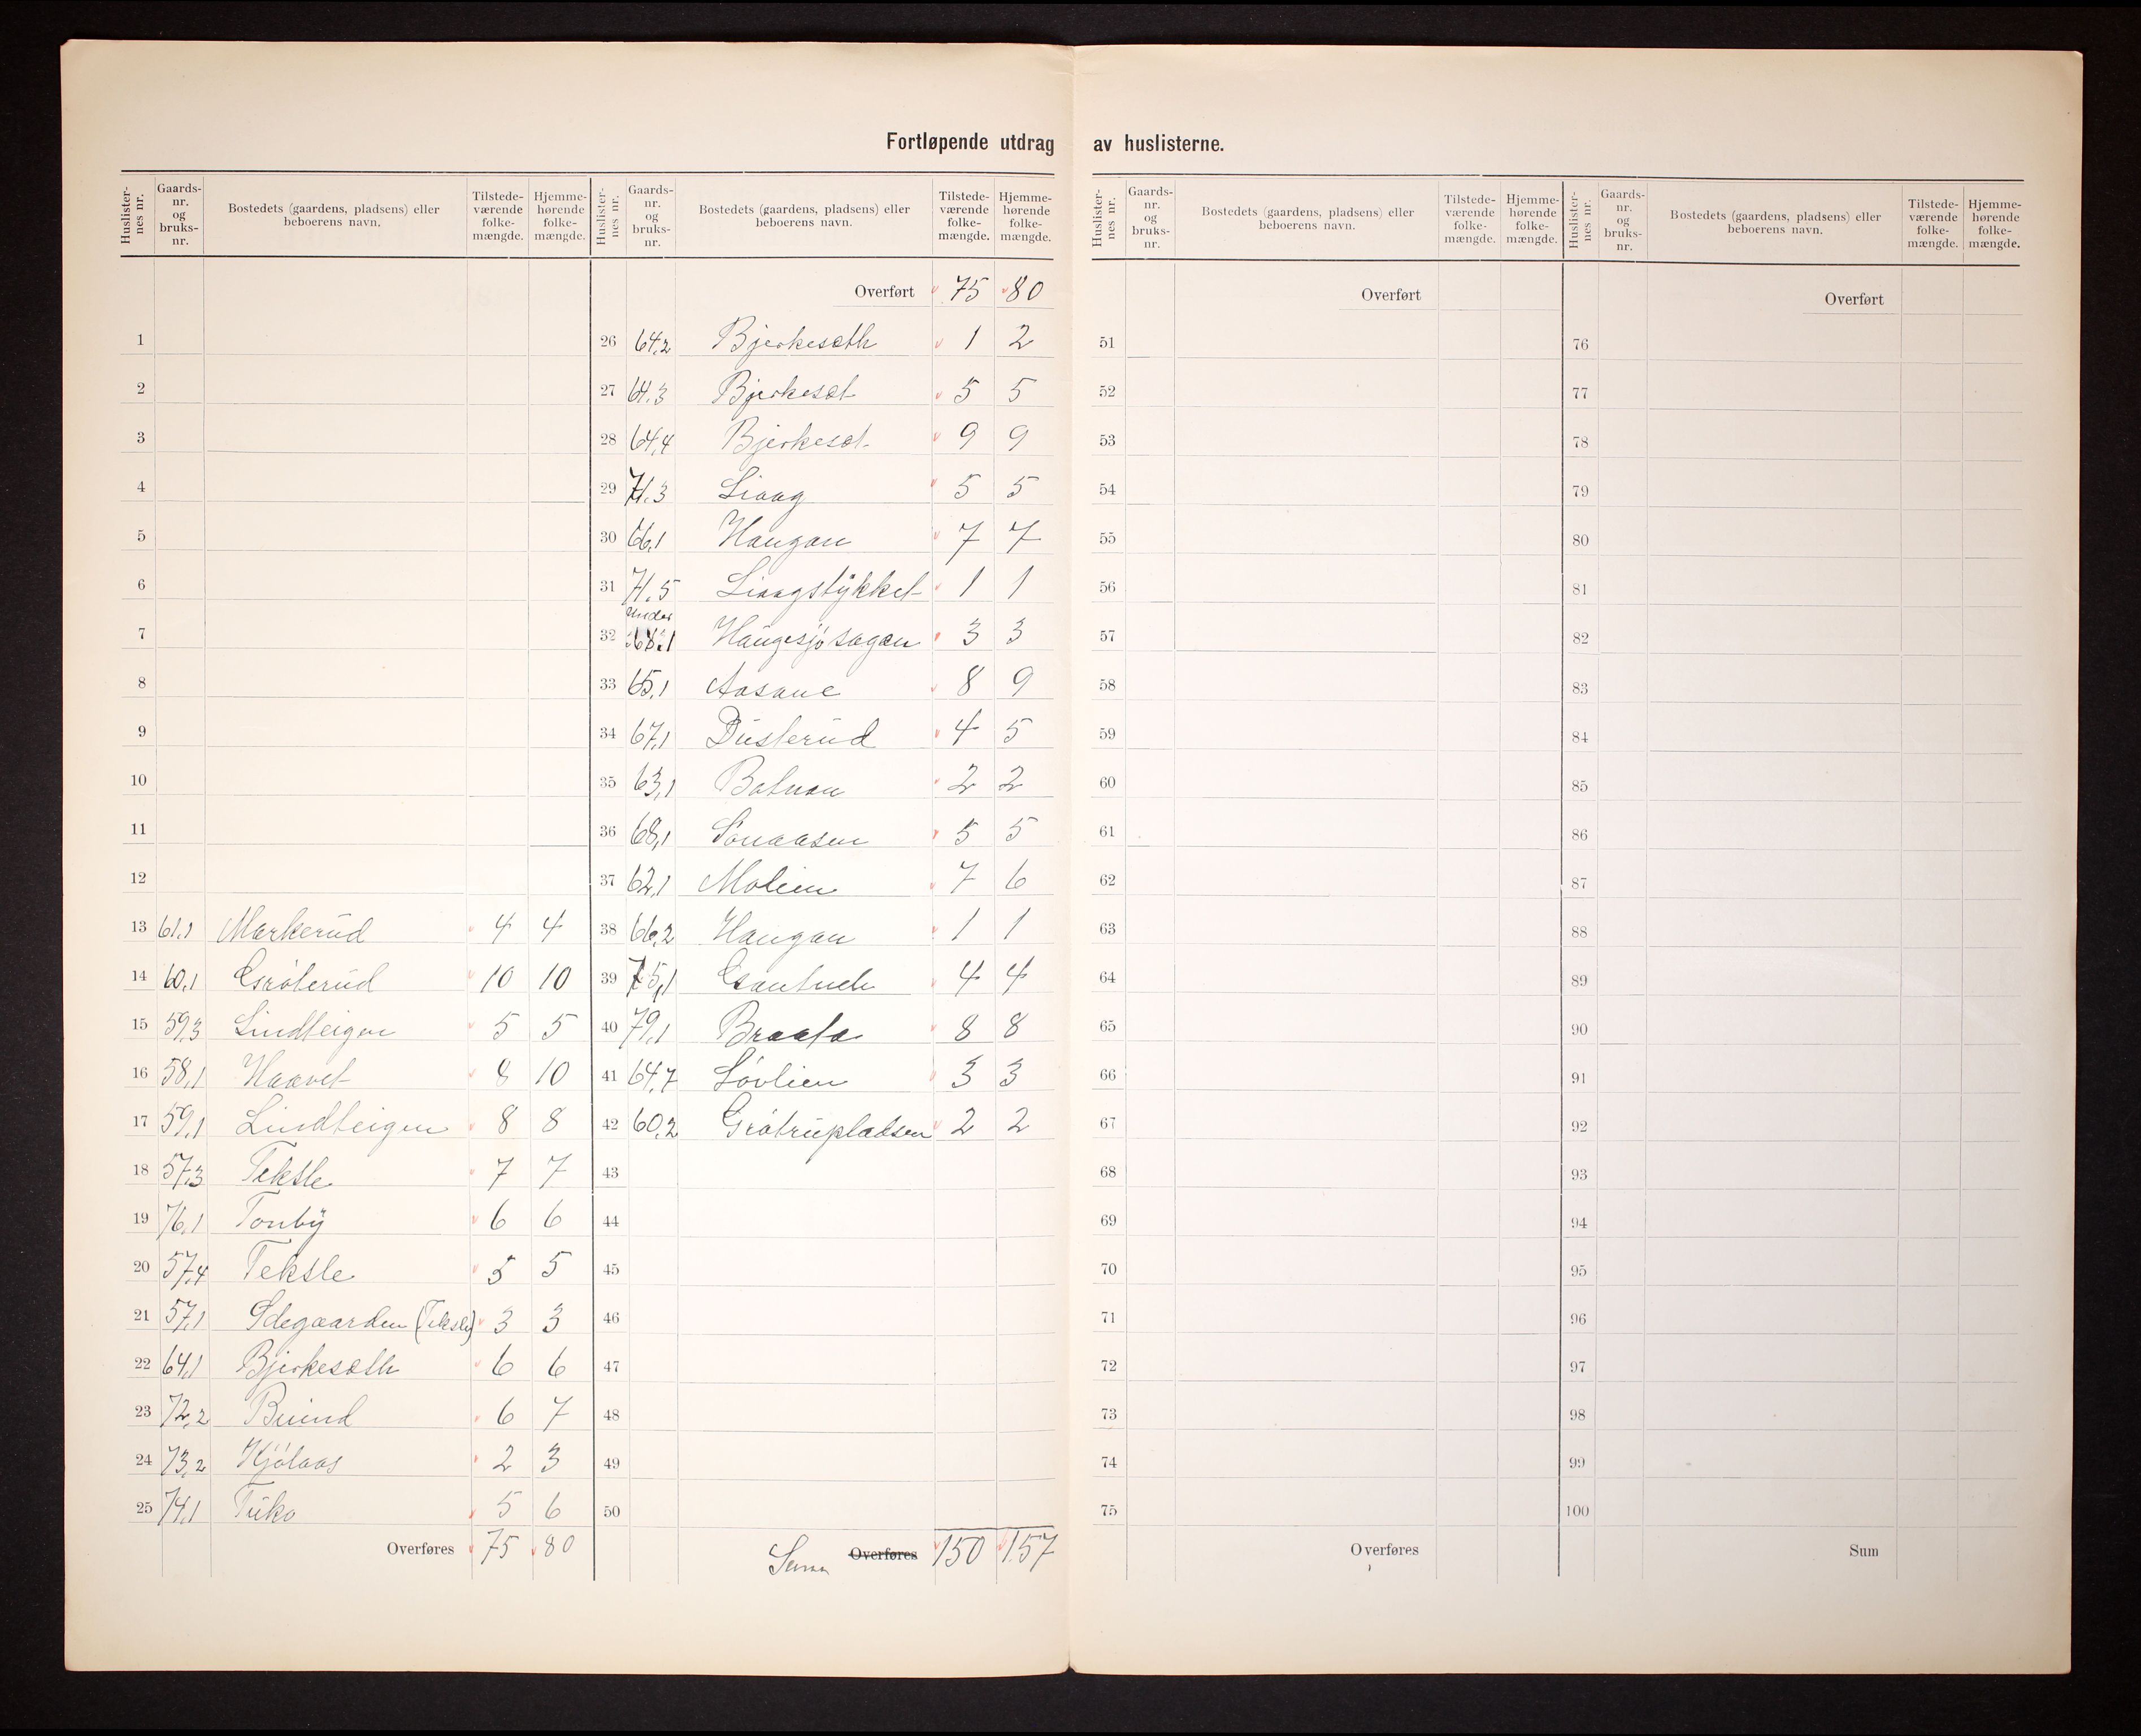 Fortløpende utdrag av huslisterne.
Huslisternes nr. Gaards-nr. og bruks-nr. Bostedets (gaardens, pladsens) eller beboerens navn. Tilstede-værende folke-mængde. Hjemme-hørende folke-mængde.
1
2
3
4
5
6
7
8
9
10
11
12
13 61,1 Markerüd 4 4
14 60,1 Gróterüd 10 10
15 59,3 Lindteigen 5 5
16 58,1 Haavet 8 10
17 59,1 Lindteigen 8 8
18 57,3 Teksle 7 7
19 76,1 Tonbÿ 6 6
20 57,4 Teksle 5 5
21 57,1 Ødegaarden (Teksle) 3 3
22 64,1 Bjerkesæth 6 6
23 72,2 Buind 6 7
24 73,2 Kjólaas 2 3
25 74,1 Tüko 5 6
Overføres 75 80
Huslisternes nr. Gaards-nr. og bruks-nr. Bostedets (gaardens, pladsens) eller beboerens navn. Tilstede-værende folke-mængde. Hjemme-hørende folke-mængde.
Overført 75 80
26 64,2 Bjerkesæth 1 2
27 64,3 Bjerkesæt 5 5
28 64,4 Bjerkesæt 9 9
29 71,3 Liaag 5 5
30 66,1 Haugan 7 7
31 71,5 Liaagstÿkket 1 1
Under
32 68,1 Haugesjósagen 3 3
33 65,1 Aasane 8 9
34 67,1 Düsterüd 4 5
35 63,1 Botnan 2 2
36 68,1 Sonaasen 5 5
37 62,1 Molien 7 6
38 66,2 Haugan 1 1
39 75,1 4 4
40 79,1 Braata 8 8
41 64,7 Lóvlien 3 3
42 60,2 Grótrüpladsen 2 2
43
44
45
46
47
48
49
50
Suma Overføres 150 157
Huslisternes nr. Gaards-nr. og bruks-nr. Bostedets (gaardens, pladsens) eller beboerens navn. Tilstede-værende folke-mængde. Hjemme-hørende folke-mængde.
Overført
51
52
53
54
55
56
57
58
59
60
61
62
63
64
65
66
67
68
69
70
71
72
73
74
75
Overføres
Huslisternes nr. Gaards-nr. og bruks-nr. Bostedets (gaardens, pladsens) eller beboerens navn. Tilstede-værende folke-mængde. Hjemme-hørende folke-mængde.
Overført
76
77
78
79
80
81
82
83
84
85
86
87
88
89
90
91
92
93
94
95
96
97
98
99
100
Sum